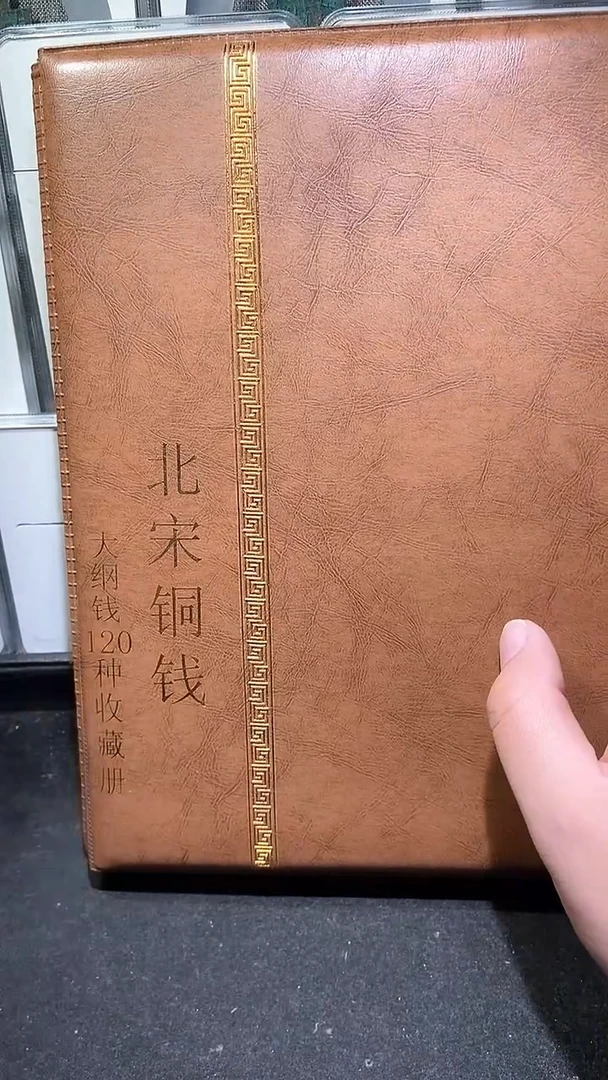 北宋铜钱
大纲钱120种收藏册